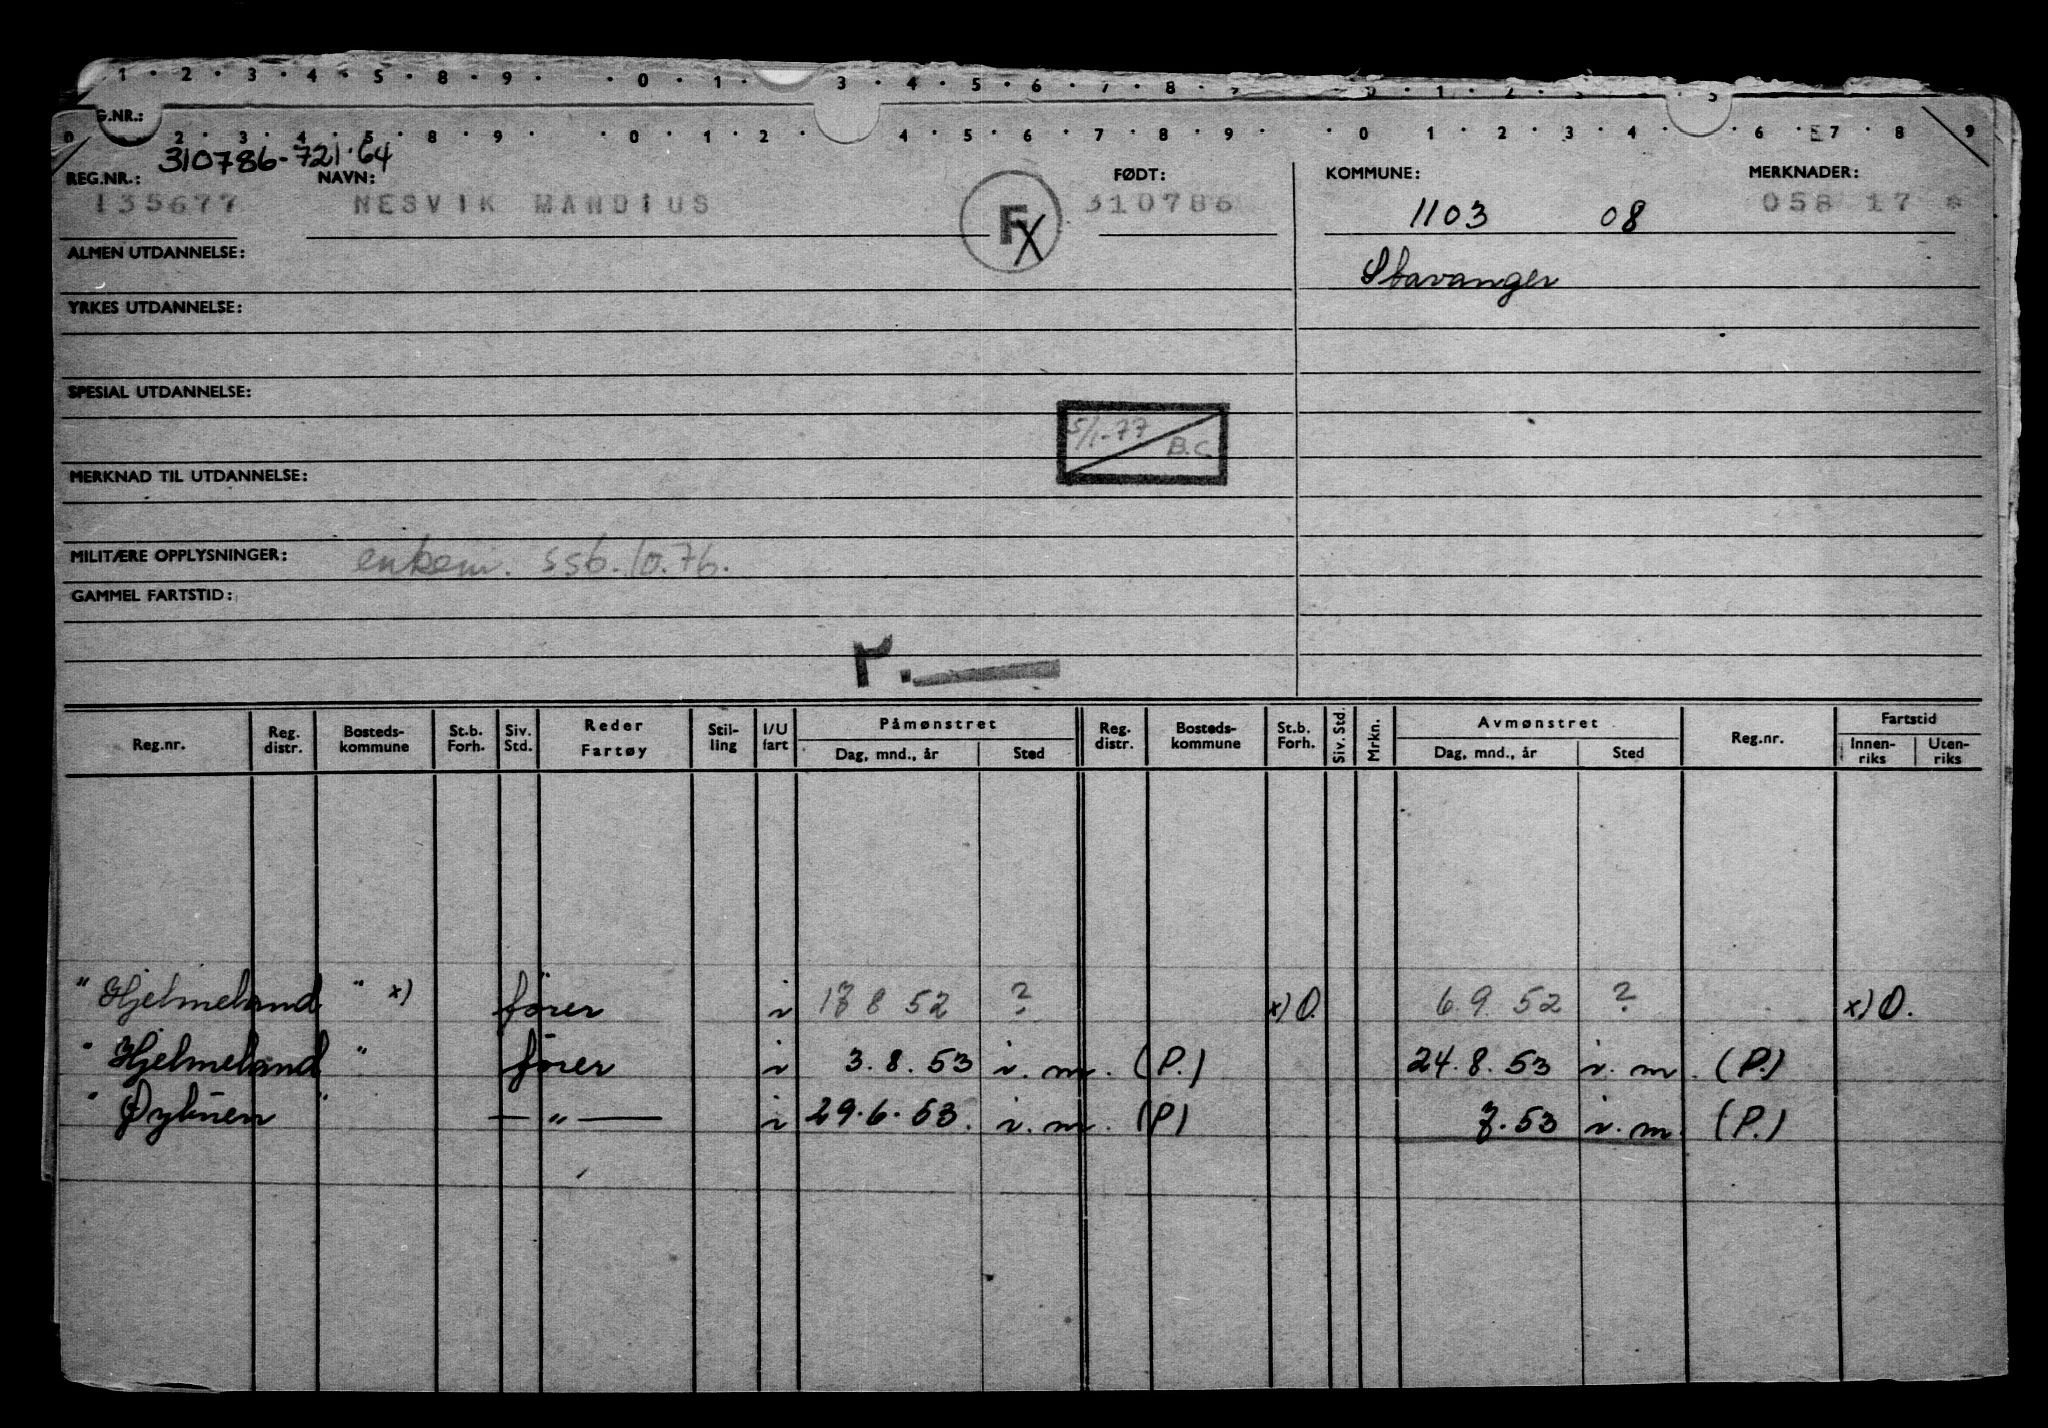 1 . 2 . 3 . 4 . 5 . 8 . 9 . . 0 . 1 . 3 . 4 . 5 . 6 . 7 . 8 . 1 . 2
G.NR.:
2 . 3 . 4 . 5 . 8 . 9 . . 0 . 1 . 2 . 4 . 5 . 6 . 7 . 8 . 9 . . 0 . 1 . 2 . 3 . 4 . 6 . 7 . 8 9
310786-721.64
REG.NR.: NAVN: FØDT: KOMMUNE: MERKNADER:
135677 NESVIK MANDIUS F X 310786 1103 08 058 17 *
ALMEN UTDANNELSE: Stavanger
YRKES UTDANNELSE:
SPESIAL UTDANNELSE:
5/1-77 B.C
MERKNAD TIL UTDANNELSE:
MILITÆRE OPPLYSNINGER: enkem. ssb. 10.76.
GAMMEL FARTSTID:
Reg.nr. Reg. distr. Bosteds-kommune St.b. Forh. Siv. Std. Reder Fartøy Stil-ling I/U fart Påmønstret Reg. distr. Bosteds-kommune St.b. Forh. Siv. Std. Mrkn. Avmønstret Reg.nr. Fartstid
Dag, mnd., år Sted Dag, mnd., år Sted Innen-riks Uten-riks
" Hjelmeland " x) fører i 17 8 52 ? x) 0. 6 9 52 ? x) 0.
" Hjelmeland " fører i 3.8.53 i.m. (P.) 24.8.53 i.m. (P.)
" " — " — i 29.6.53. i.m. (P) 7.53 i.m. (P.)